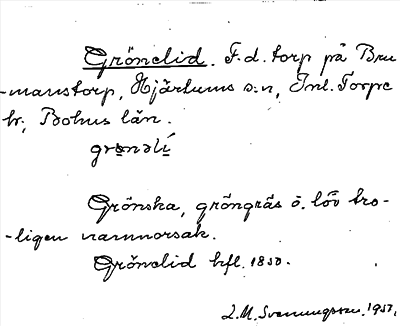 Grönelid. F.d. torp på Bru-
-manstorp, Hjärtums s:n, Inl. Torpe
hr, Bohus län.
grönəlí
Grönska, gröngräs o. löv tro-
-ligen namnorsak.
Grönelid hfl. 1850.
L.M. Svenungsson. 1957.